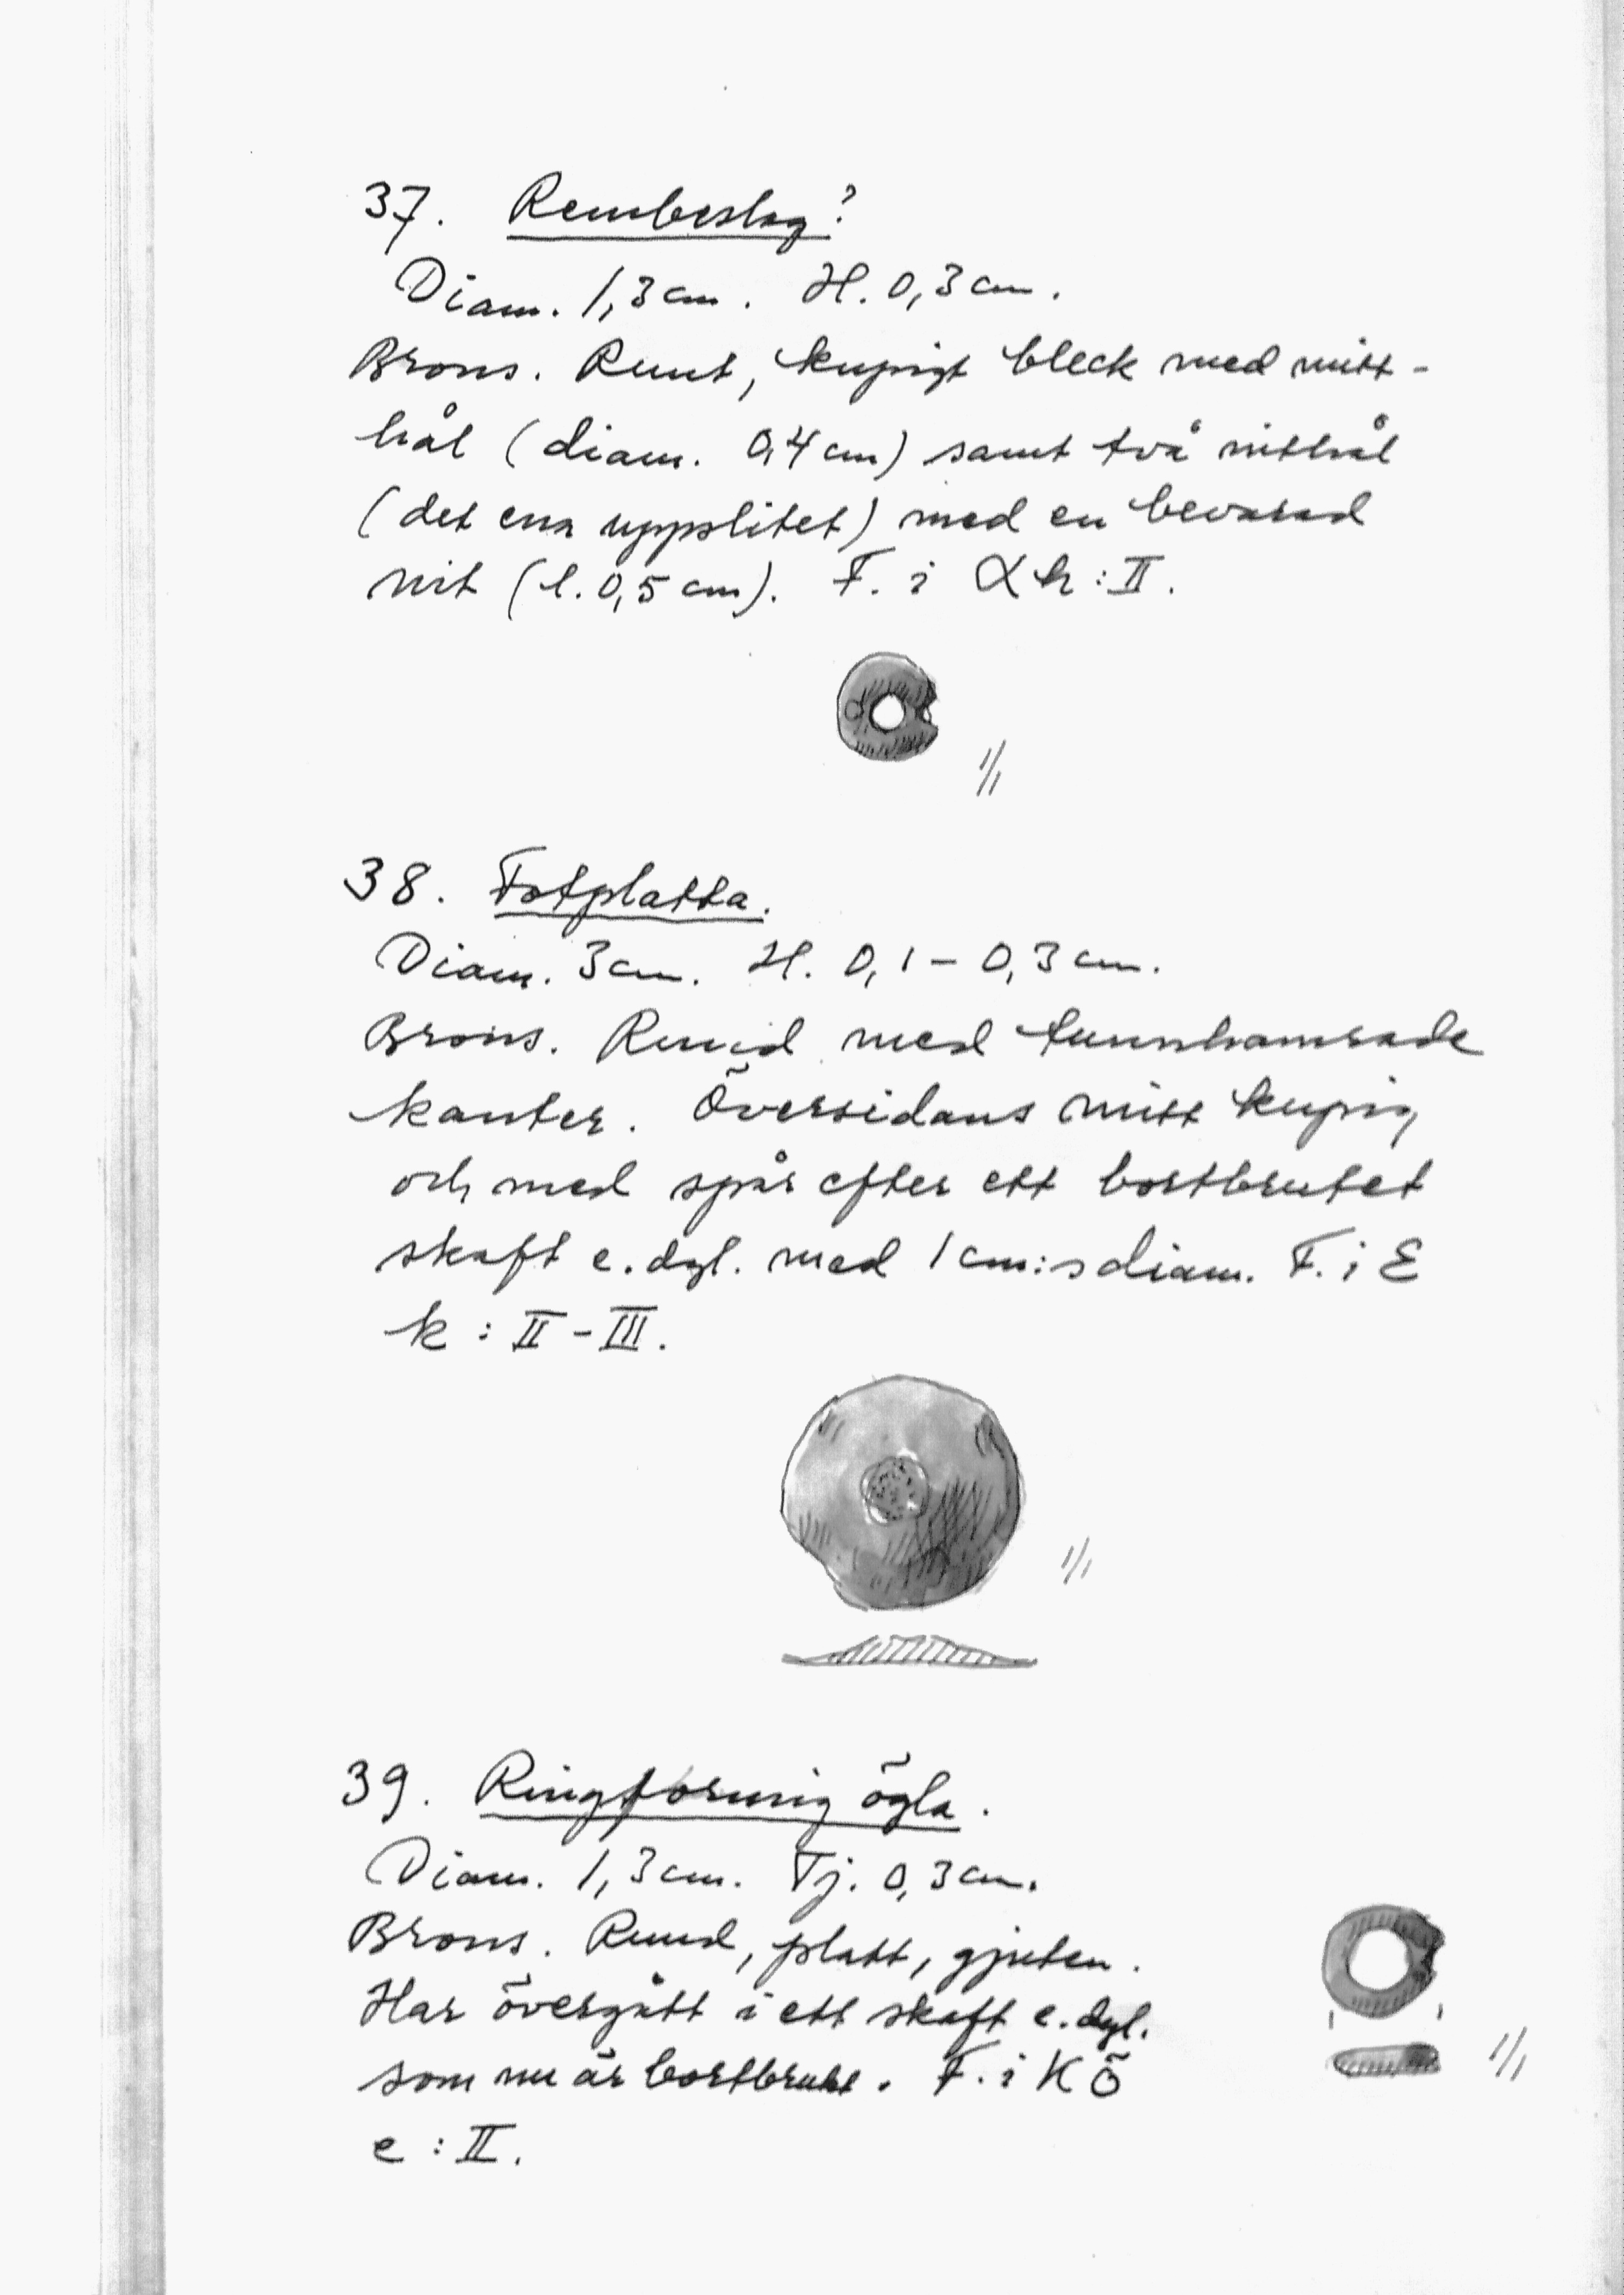 37. Rembeslag?
Diam. 1,3 cm. H. 0,3 cm.
Brons. Runt, kupigt bleck med mitt-
hål (diam. 0,4 cm) samt två nithål
(det ena uppslitet) med en bevarad
nit (l. 0,5 cm). F. i αh : II.
1/1
38. Fotplatta.
Diam. 3 cm. H. 0,1 – 0,3 cm.
Brons. Rund med tunnhamrade
kanter. Översidans mitt kupig
och med spår efter ett bortbrutet
skaft e. dyl. med 1 cm:s diam. F. i E
k : II – III.
1/1
39. Ringformig ögla.
Diam. 1,3 cm. Tj. 0,3 cm.
Brons. Rund, platt, gjuten.
Har övergått i ett skaft e. dyl.
som nu är bortbrutet. F. i K Ö
e : II.
1/1